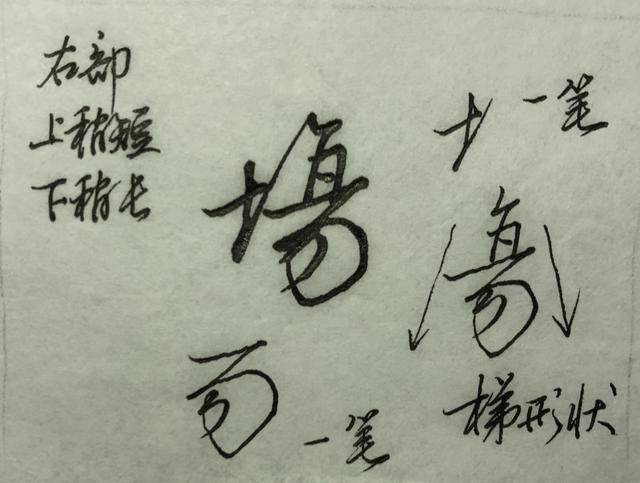 右部
上稍短
下稍长
場
一笔
一笔
梯形状